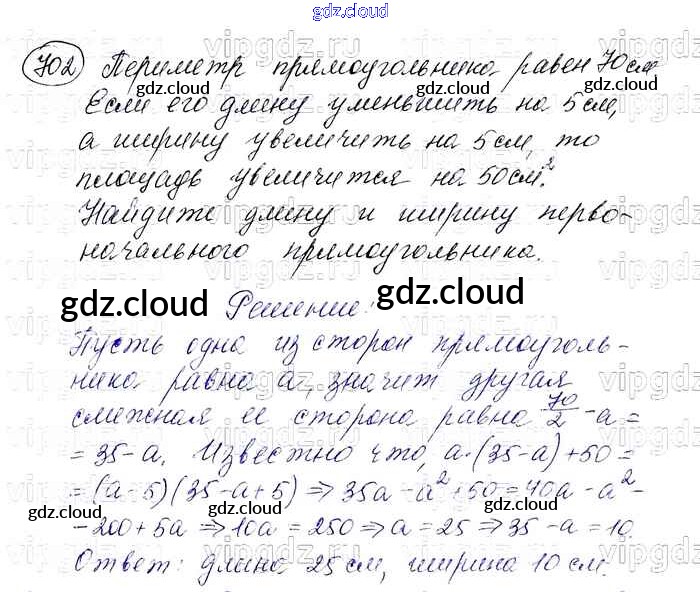 gdz.cloud
702 Периметр прямоугольника равен 70 см.
Если его длину уменьшить на 5 см,
а ширину увеличить на 5 см, то
площадь увеличится на 50 см².
Найдите длину и ширину перво-
начального прямоугольника.
Решение:
Пусть одна из сторон прямоуголь-
ника равна a, значит другая
смежная ее сторона равна 70/2 - a =
= 35 - a. Известно что, a·(35-a)+50 =
= (a-5)(35-a+5) ⇒ 35a - a² + 50 = 40a - a² -
- 200 + 5a ⇒ 10a = 250 ⇒ a = 25 ⇒ 35 - a = 10.
Ответ: длина 25 см, ширина 10 см.